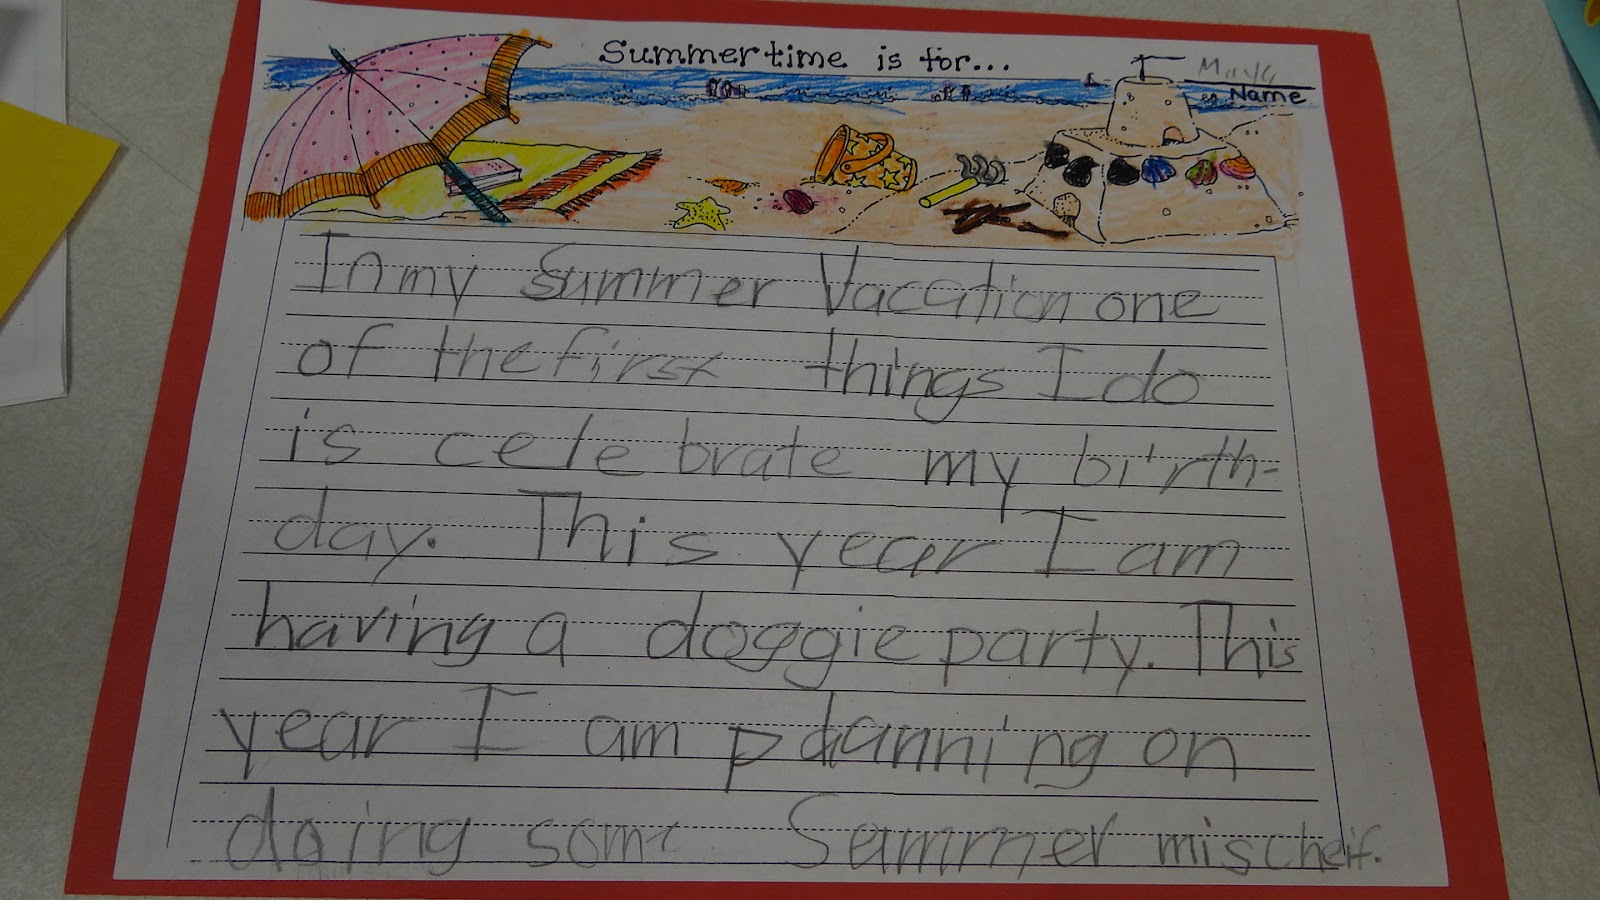 Summertime is for...
Name
In my Summer Vacation one
of the first things I do
is celebrate my birth-
day. This year I am
having a doggie party. This
year I am planning on
doing some Summer mischeif.